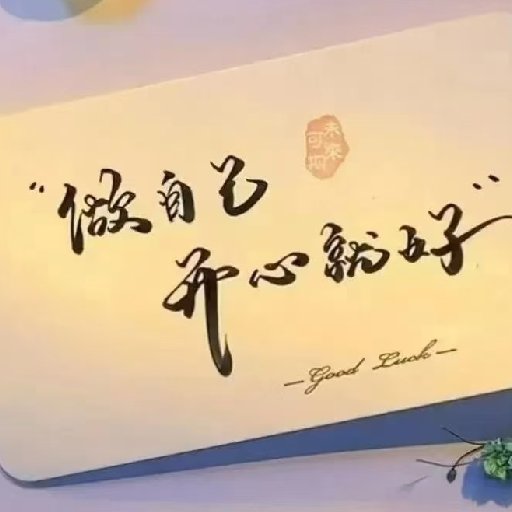 “做自己
开心就好”
未来可期
—Good Luck—